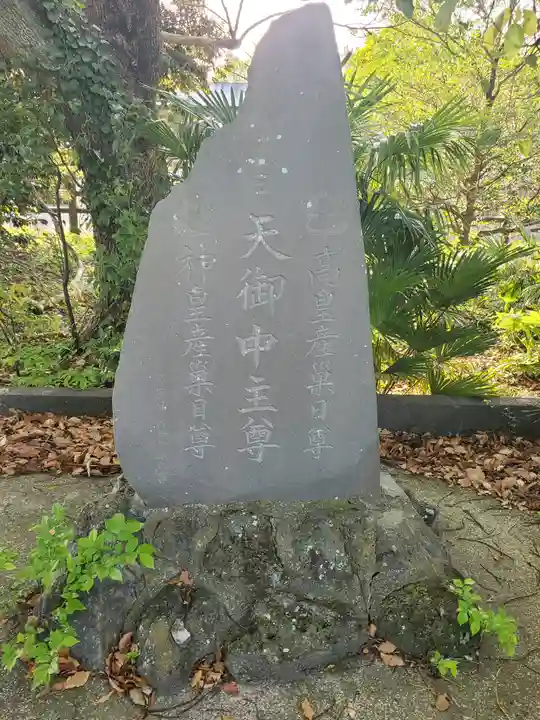 高皇産巣日尊
天御中主尊
神皇産巣日尊